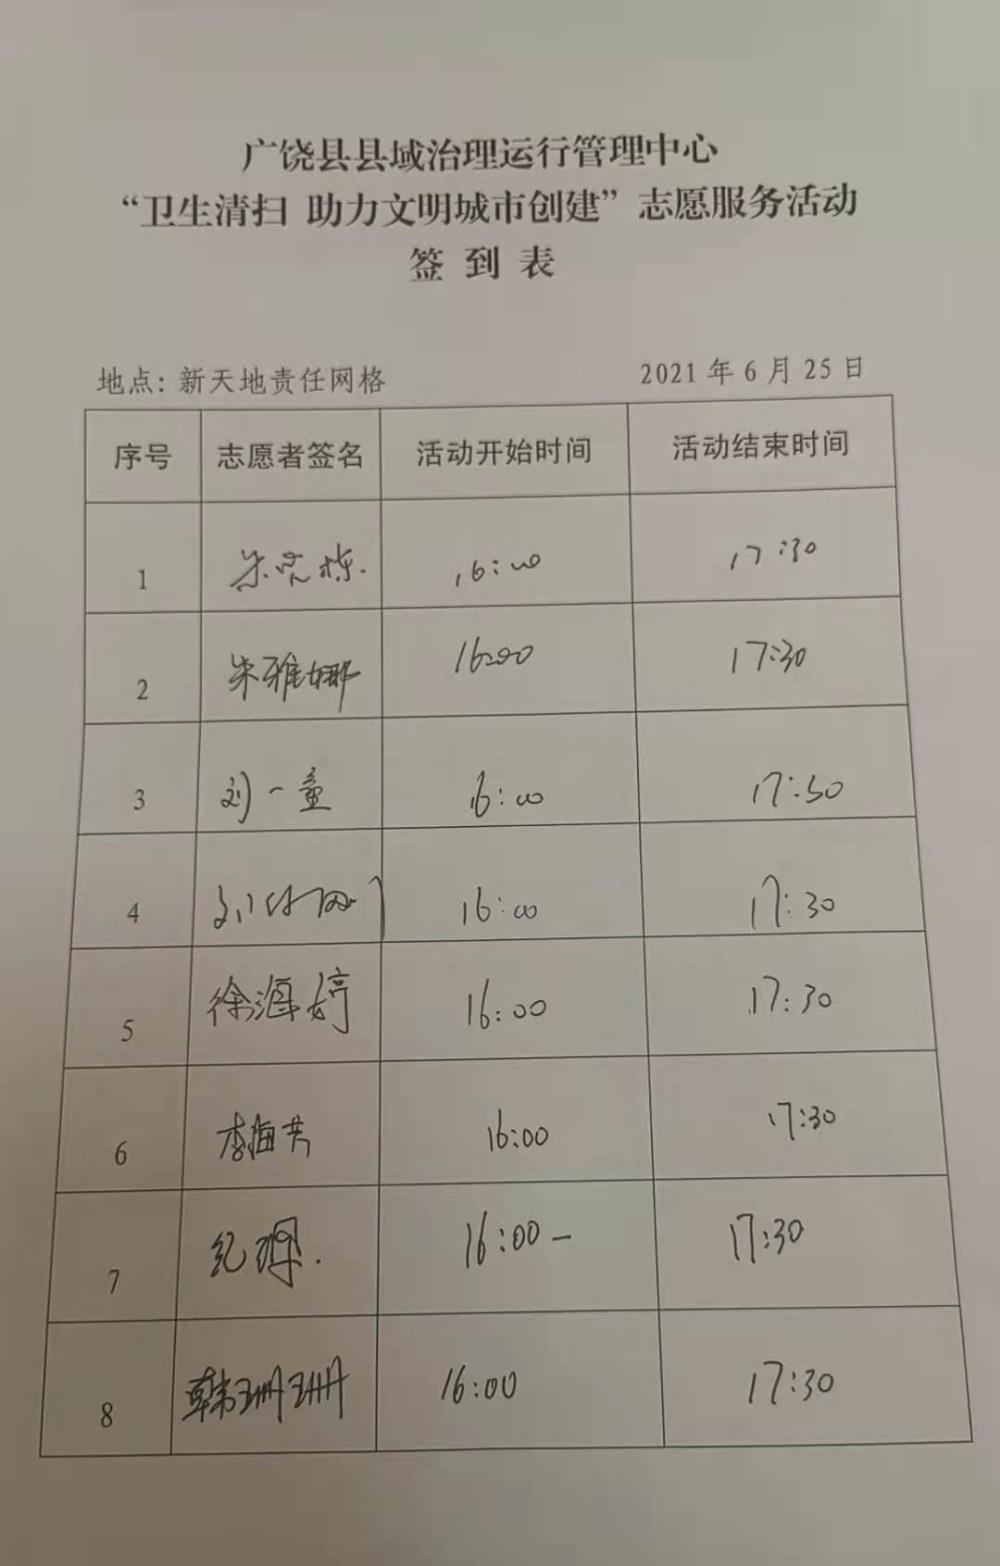 广饶县县域治理运行管理中心
“卫生清扫 助力文明城市创建”志愿服务活动
签 到 表
地点: 新天地责任网格 2021 年 6 月 25 日
序号 志愿者签名 活动开始时间 活动结束时间
1 朱晓栋 16:00 17:30
2 朱雅娜 16:00 17:30
3 刘一童 16:00 17:30
4 16:00 17:30
5 徐海婷 16:00 17:30
6 李梅芳 16:00 17:30
7 纪 16:00- 17:30
8 韩珊珊 16:00 17:30